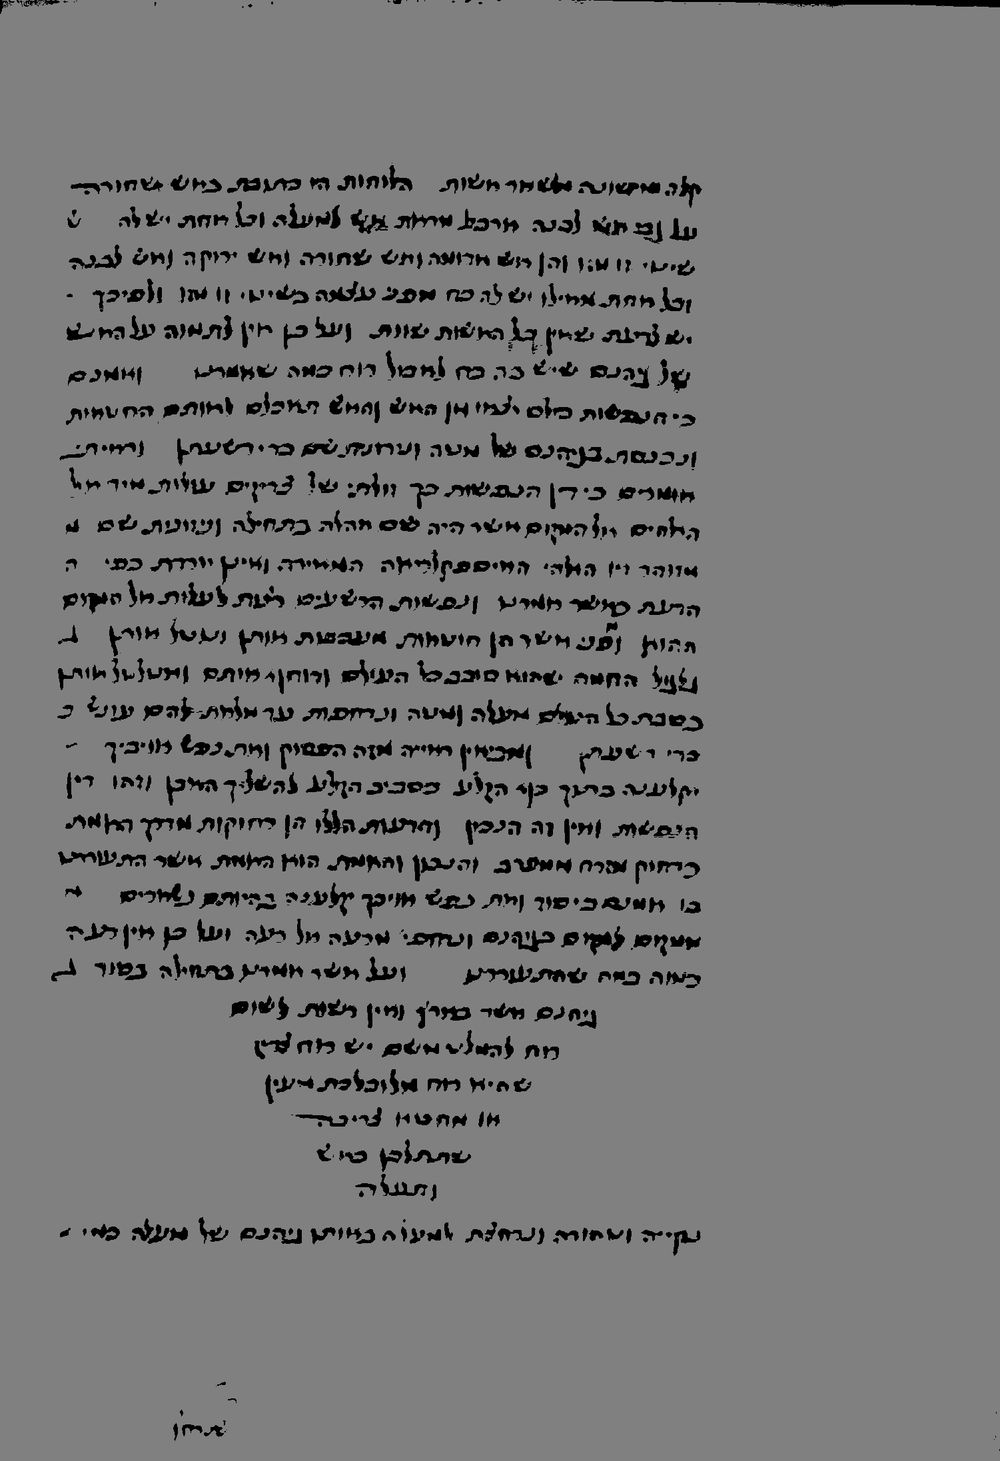 קלה מראשונה משאר אשות הלוחות היו כתובת באש שחורה
על גב אש לבנה וכל אחת יש לה
שינוי זו מזו והן אש אדומה ואש שחורה ואש ירוקה ואש לבנה
וכל אחת מאילו יש לה כח מפני עצמה בשינוי זו מזו ולפיכך
יש לדעת שאין כל האשות שוות ועל כן אין לתמוה על האש
של גהנם שיש בה כח לאכול רוח כמה שאמרנו ואמנם
כי הנפשות כולם יצאו מן האש והאש תאכלם לאותם החטאות
ונכנסת בגיהנם של מטה ונדונת שם כדי רשעתן
אומרים כי דין הנפשות כך זולתי של צדיקים עולות מיד אל
האלהים אל המקום אשר היה שם אהלה בתחילה וניזונית שם
מזוהר זיו האלהי האיספקלריאה המאירה ואינן יורדת כפי
הדעת כאשר אמרנו ונפשות הרשעים רוצות לעלות אל המקום
ההוא ומפני אשר הן חוטאות מעכבות אותן
גלגל החמה שהוא סובב כל העולם ודוחף אותם ומטלטל אותן
כסבת כל העולם מעלה ומטה ונדחפות עד מלאת להם עונש
כדי רשעתן ומביאין ראייה מזה הפסוק ואת נפש אויביך
יקלענה בתוך כף הקלע כסביב הקלע להשליך האבן וזהו דין
הנפשות ואין זה הנכון והדעות הללו הן רחוקות מדרך האמת
כרחוק מזרח ממערב והנכון והאמת הוא האמת אשר התעוררנו
בו אמנם כי סוד ואת נפש אויביך יקלענה בהיותם נשארים
ממקום למקום בגיהנם ונדחפי מרעה אל רעה ועל כן אין רעה
כמוה כמה שהתעוררנו ועל אשר אמרנו בתחילה בסוד
גיהנם אשר בארץ ואין רשות לשום
רוח להמלט משם יש רוח צדיק
שהיא רוח
או מחטא צריכה
שתתלבן באש
ותעלה
נקייה וטהורה ונרחצת למעלה באותו גיהנם של מעלה